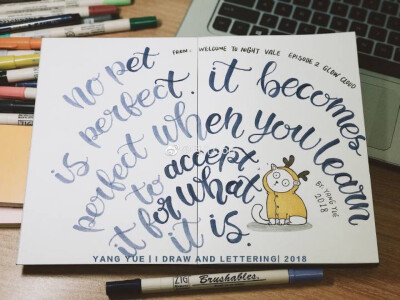 FROM: WELCOME TO NIGHT VALE EPISODE 2 GLOW CLOUD
no pet
is perfect. it becomes
perfect when you learn
to accept
it for what
it is.
BY YANG YUE
2018
YANG YUE | I DRAW AND LETTERING | 2018
ZIG Brushables